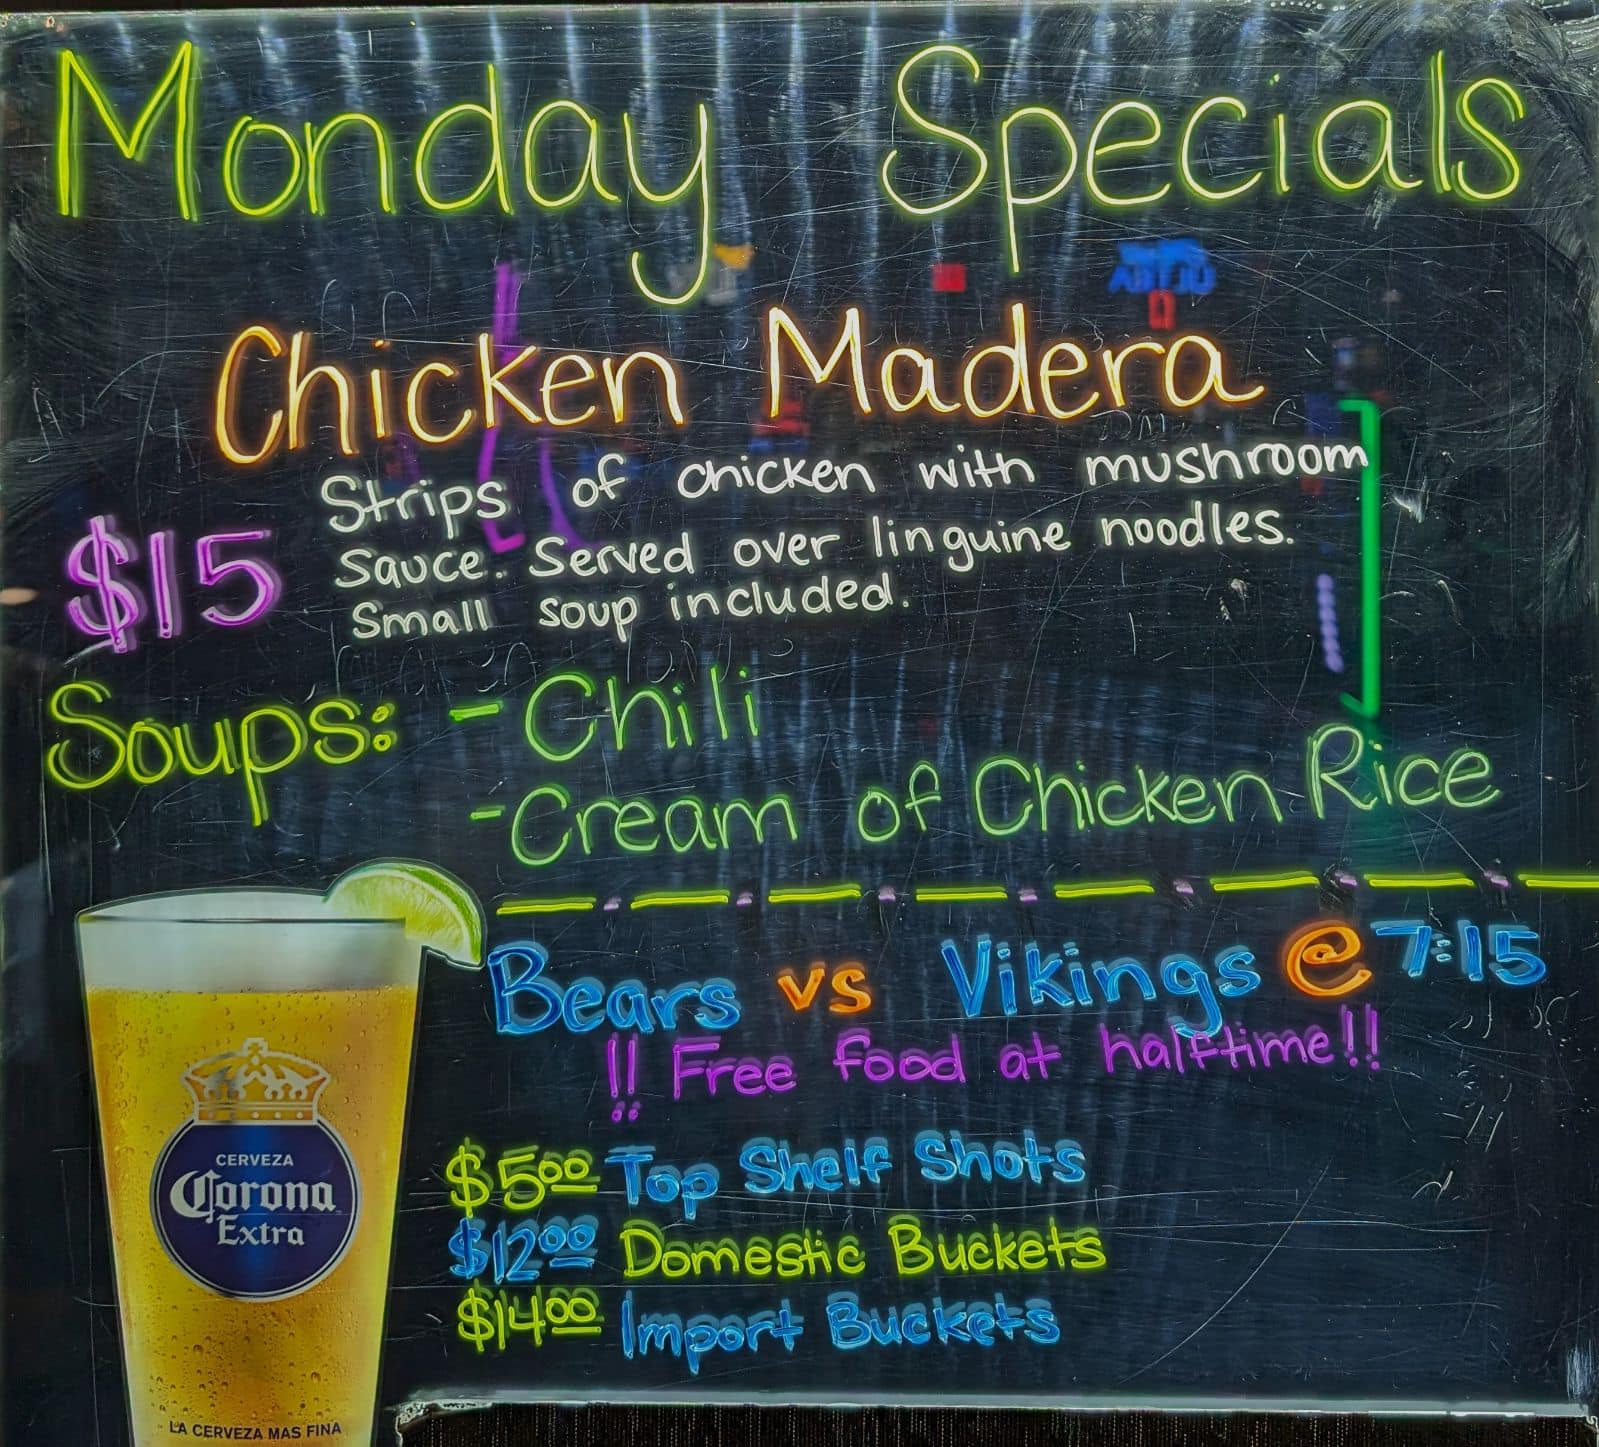 Monday Specials
Chicken Madera
$15
Strips of chicken with mushroom
Sauce. Served over linguine noodles.
Small soup included.
Soups: - Chili
- Cream of Chicken Rice
Bears vs Vikings @ 7:15
!! Free food at halftime!!
$5.00 Top Shelf Shots
$12.00 Domestic Buckets
$14.00 Import Buckets
CERVEZA
Corona
Extra
LA CERVEZA MAS FINA